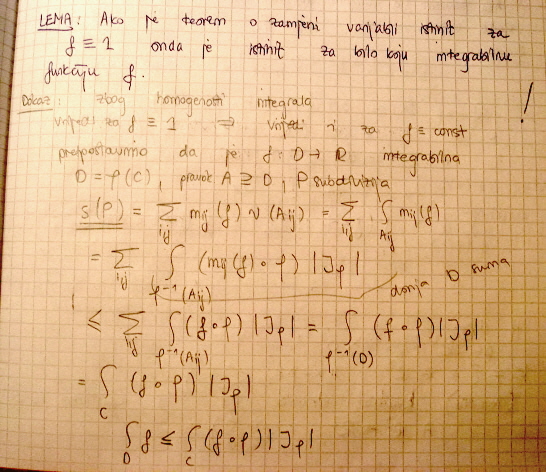 LEMA: Ako je teorem o zamjeni varijabli istinit za
f ≡ 1 onda je istinit za bilo koju integrabilnu
funkciju f.
!
Dokaz: zbog homogenosti integrala
vrijedi za f ≡ 1 ⇒ vrijedi i za f ≡ const
pretpostavimo da je f: D → R integrabilna
D = φ(C), pravok A ⊇ D, P subdivizija
s(P) = ∑_{i,j} m_{ij}(f) v(A_{ij}) = ∑_{i,j} ∫_{A_{ij}} m_{ij}(f)
= ∑_{i,j} ∫_{φ^{-1}(A_{ij})} (m_{ij}(f) ∘ φ) |J_φ|
donja D suma
≤ ∑_{i,j} ∫_{φ^{-1}(A_{ij})} (f∘φ) |J_φ| = ∫_{φ^{-1}(D)} (f∘φ) |J_φ|
= ∫_C (f∘φ) |J_φ|
∫_D f ≤ ∫_C (f∘φ) |J_φ|